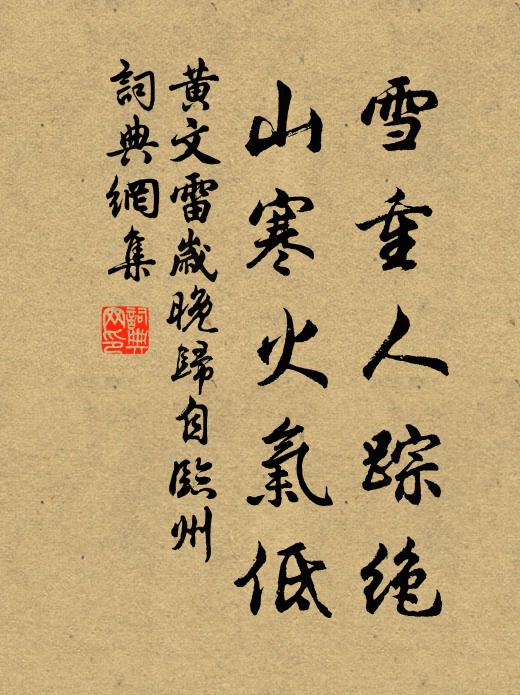 雪重人踪绝
山寒火氣低
黃文雷歲晚歸自臨州
詞典網集
詞典网印